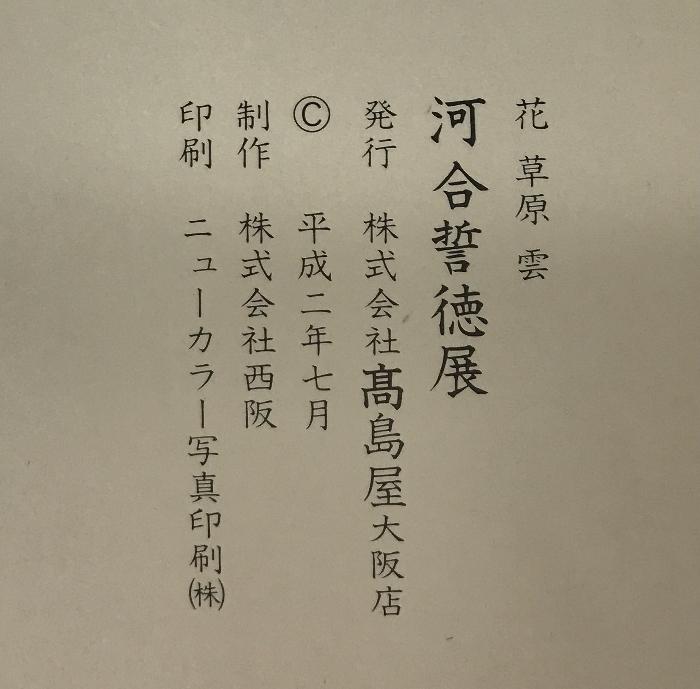 花 草原 雲
河合誓徳展
発行 株式会社髙島屋大阪店
© 平成二年七月
制作 株式会社西阪
印刷 ニューカラー写真印刷㈱